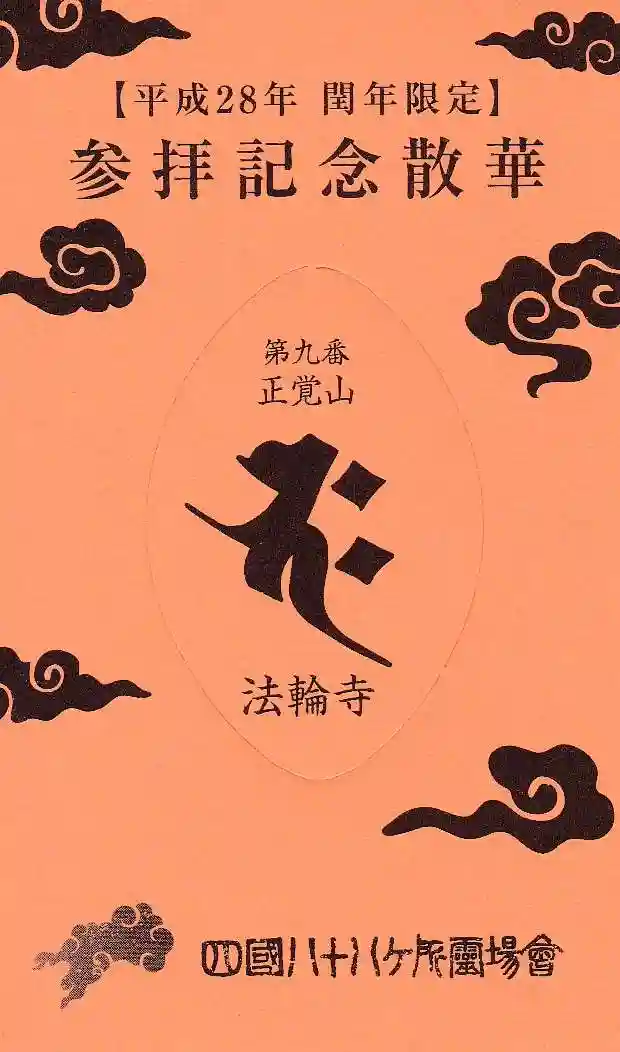 【平成28年 閏年限定】
参拝記念散華
第九番
正覚山
𑖥𑖾
法輪寺
四國八十八ヶ所霊場會